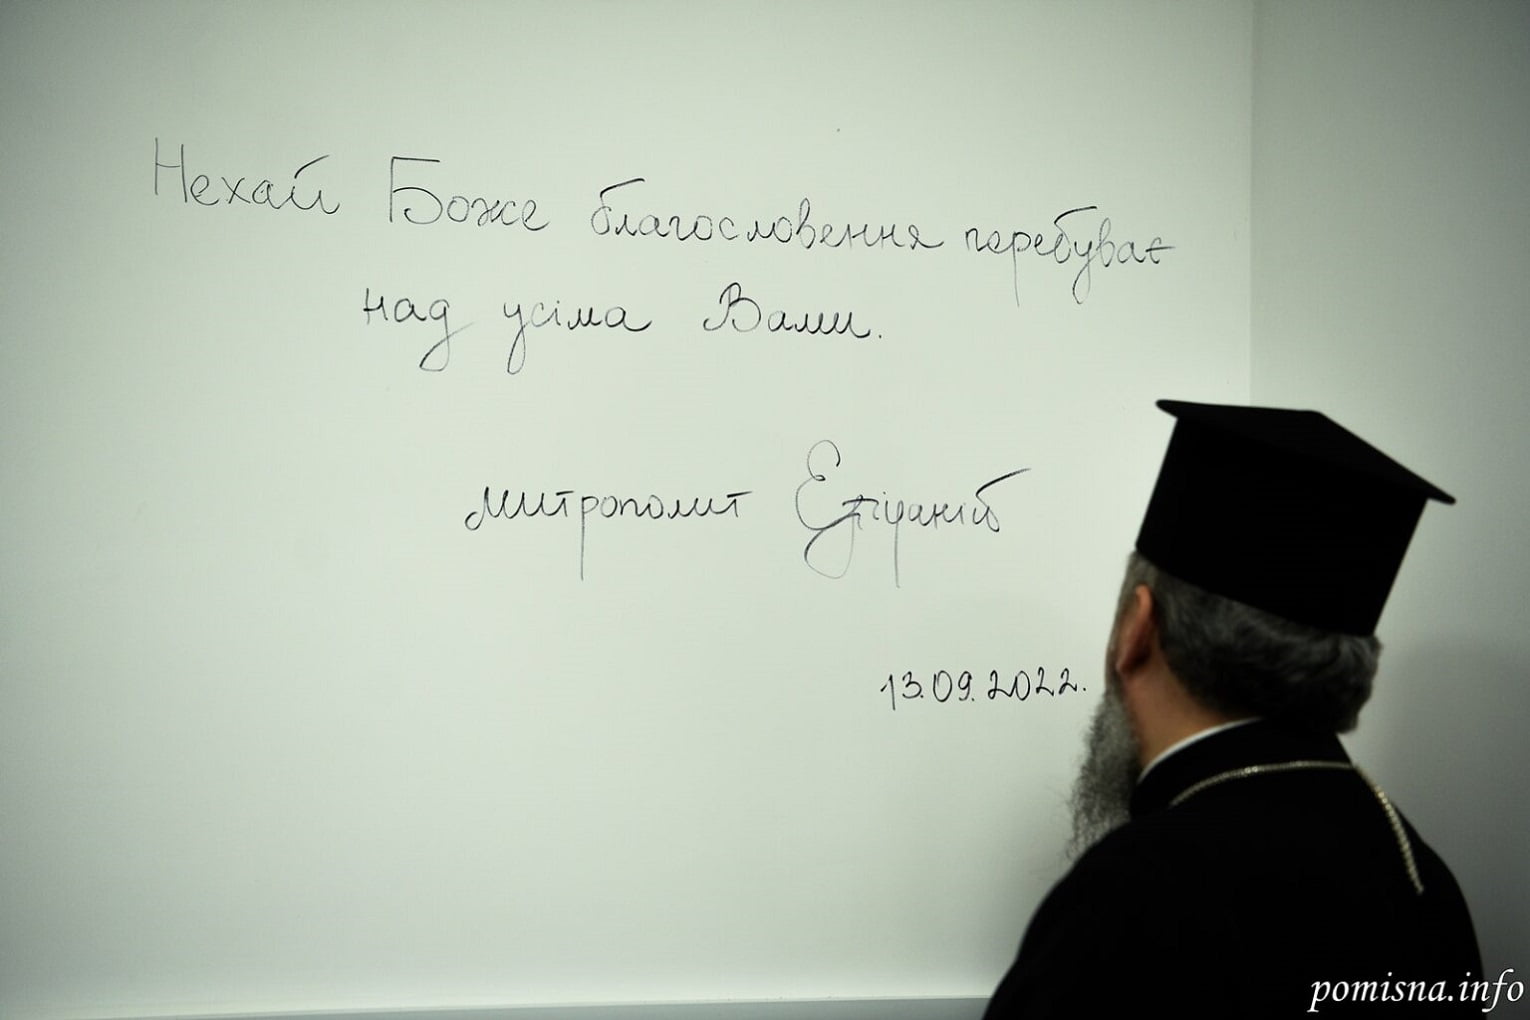 Нехай Боже благословення перебуває
над усіма Вами.
митрополит Епіфаній
13.09.2022.
pomisna.info